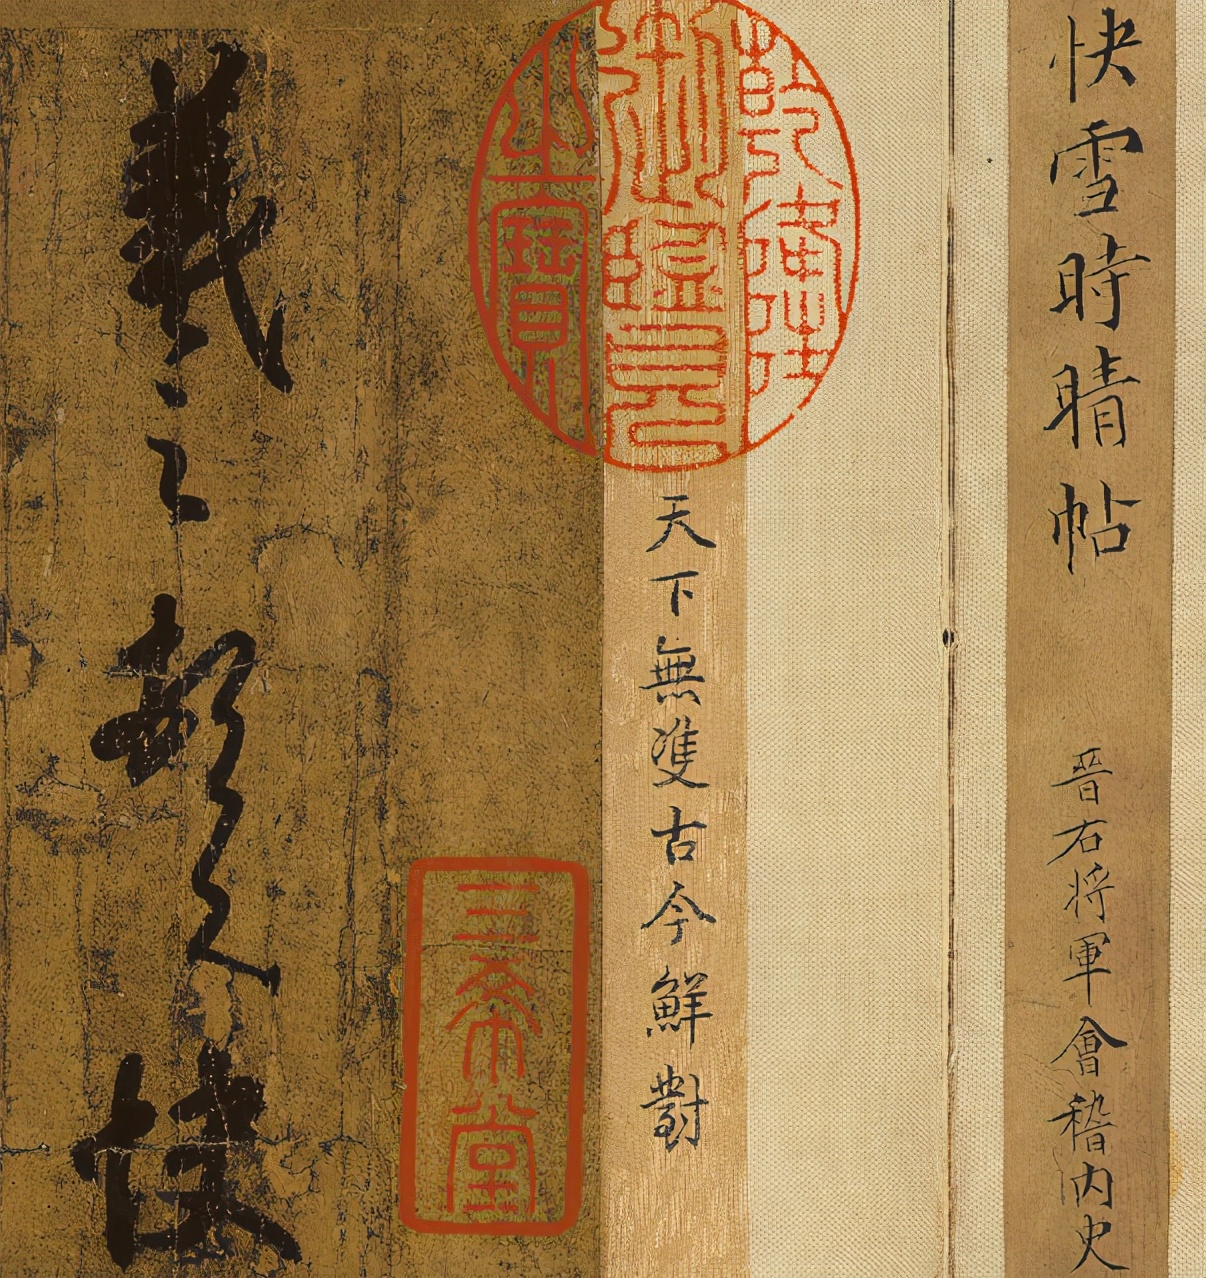 快雪時晴帖 晉右将軍會稽内史
乾隆
御覽
之寶
天下無雙古今鮮對
三希堂
羲之頓首快